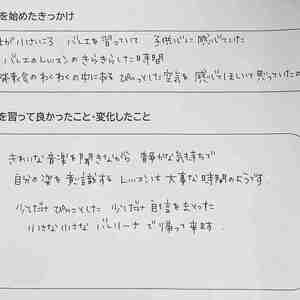 を始めたきっかけ
が小さいころ バレエを習っていて 子供心に感じていた
バレエのレッスンのきらきらした時間
発表会のわくわくの中にある ぴりっとした空気を 感じてほしいと思っていた
を習って良かったこと・変化したこと
きれいな音楽を聞きながら 静かな気持ちで
自分の姿を意識する レッスンは 大事な時間のようです.
少しだけ ぴりっとした 少しだけ 自信を まとった
小さな小さな バレリーナ で帰って来ます.